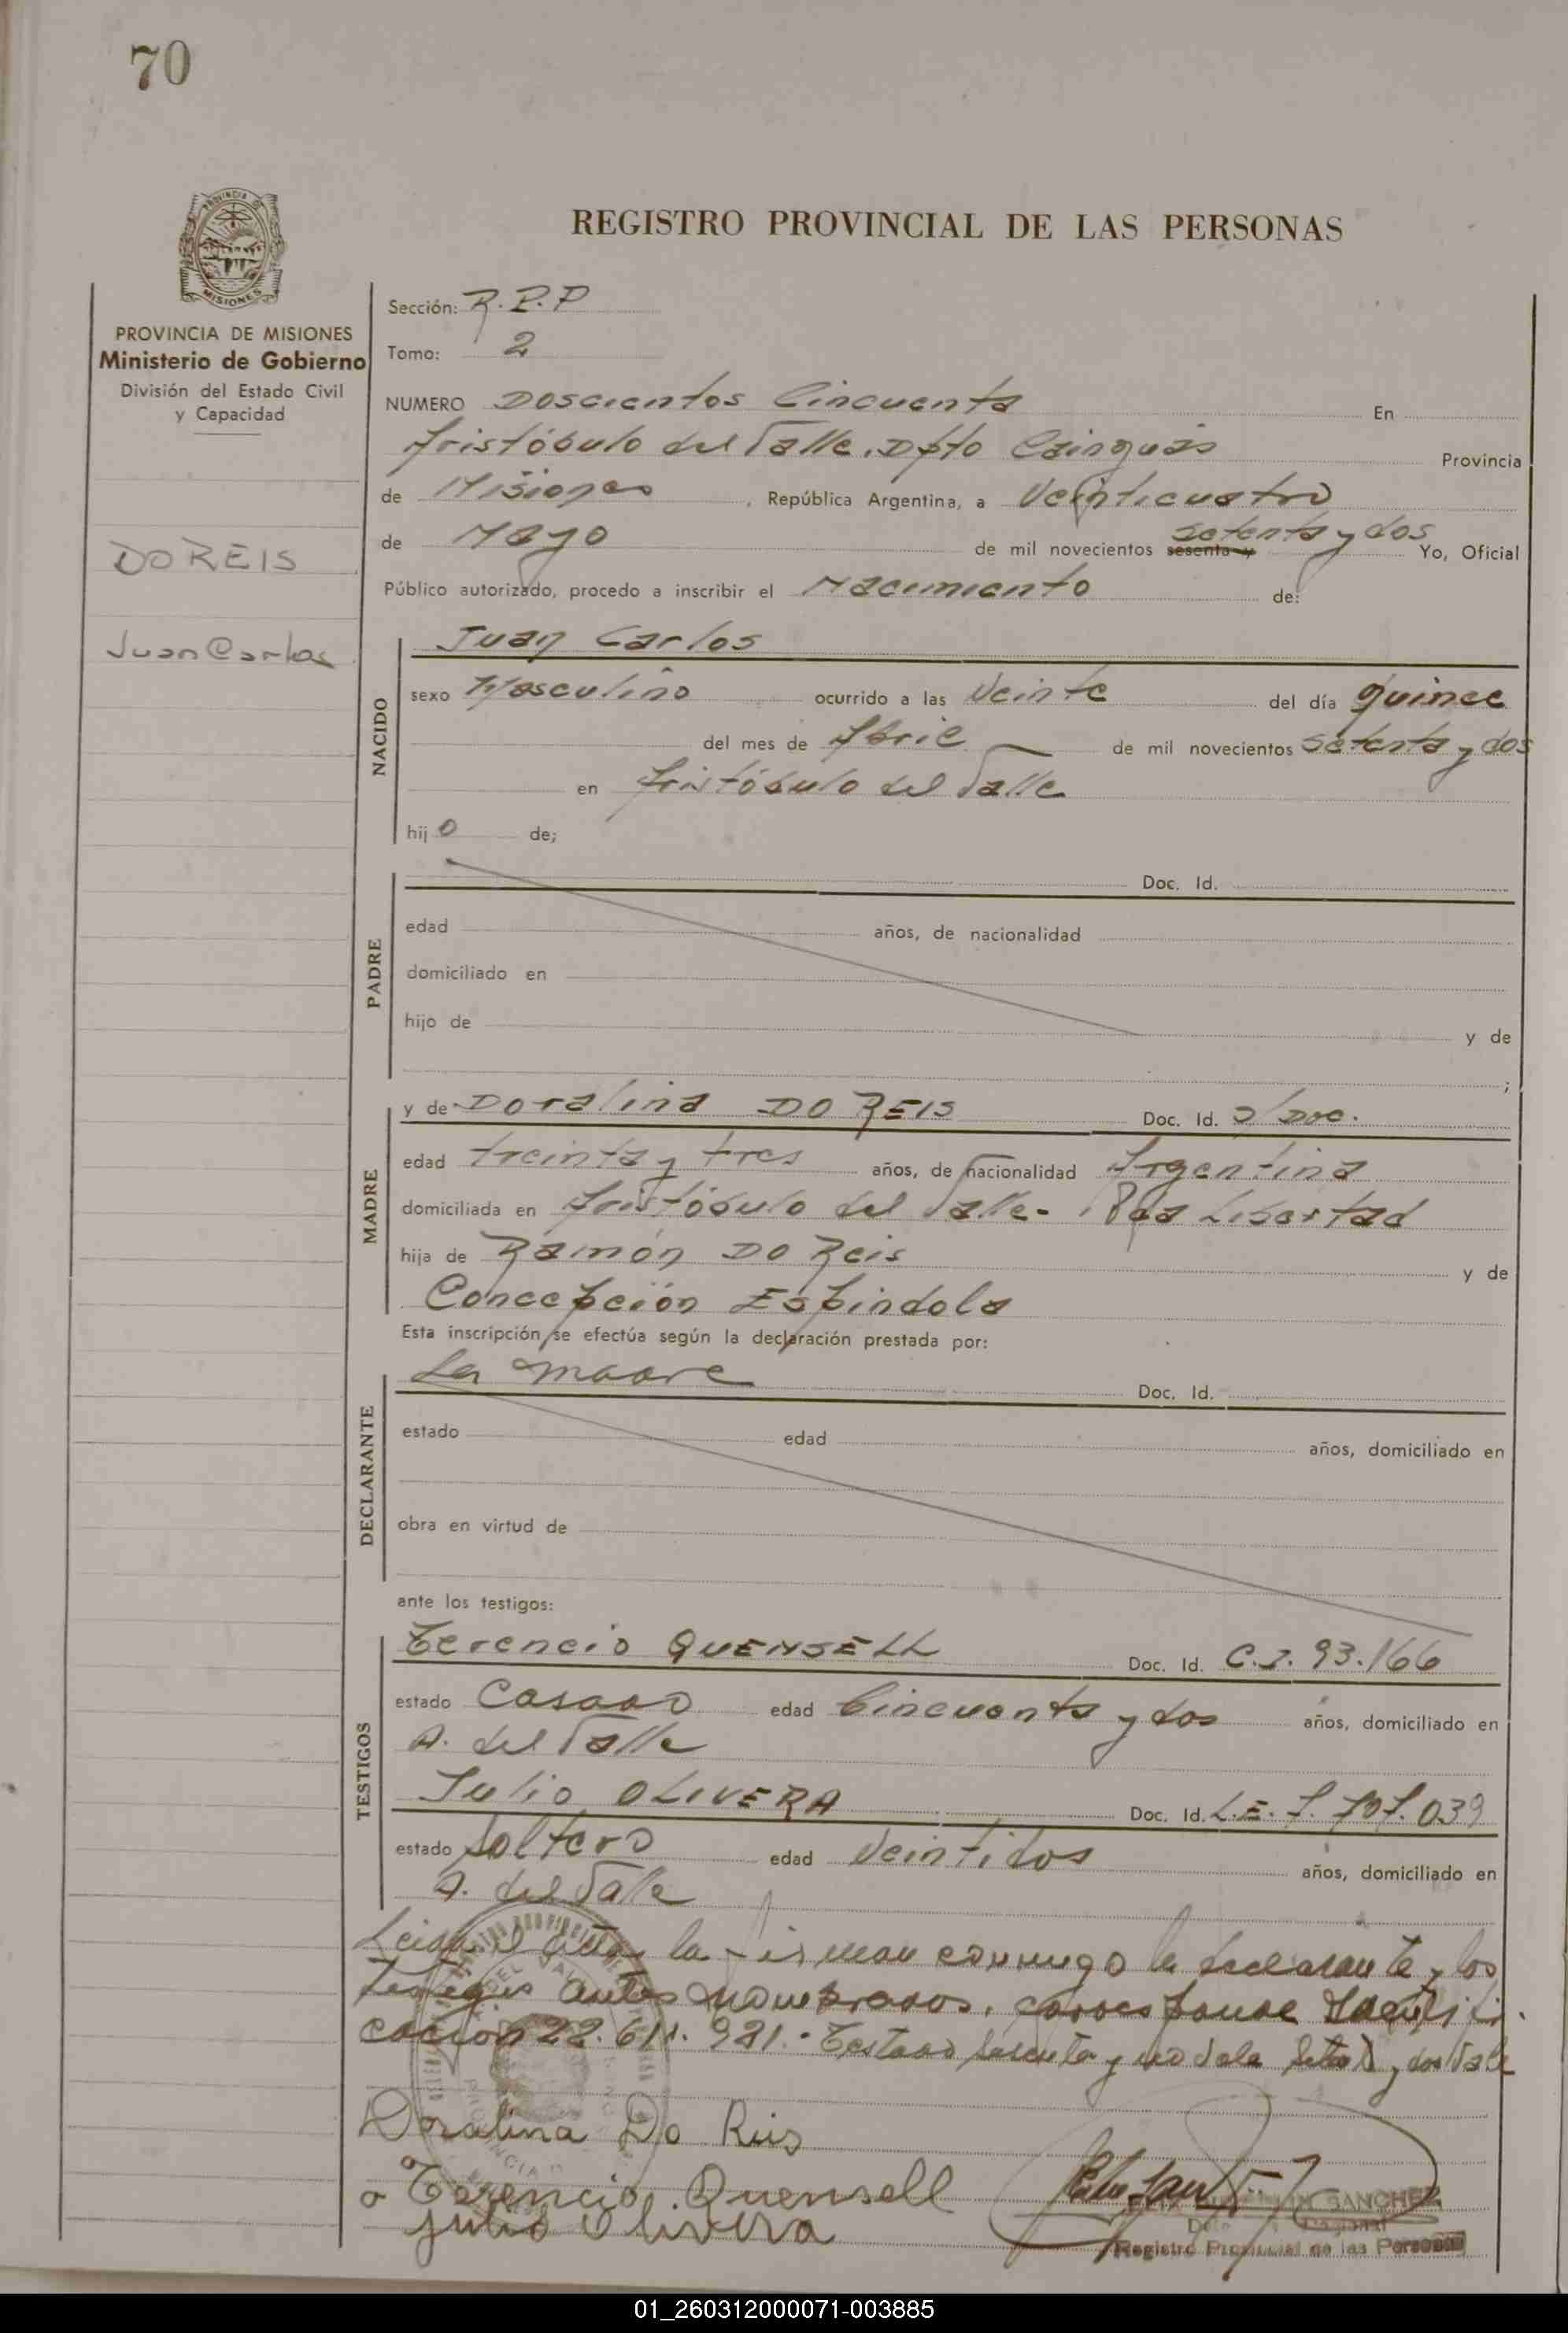 70
PROVINCIA DE MISIONES
Ministerio de Gobierno
División del Estado Civil
y Capacidad
DO REIS
Juan Carlos
REGISTRO PROVINCIAL DE LAS PERSONAS
Sección: R.P.P
Tomo: 2
NUMERO Doscientos Cincuenta En
Aristóbulo del Valle. Dpto Cainguás Provincia
de Misiones, República Argentina, a Veinticuatro
de Mayo de mil novecientos sesenta y setenta y dos Yo, Oficial
Público autorizado, procedo a inscribir el Nacimiento de:
NACIDO
Juan Carlos
sexo Masculino ocurrido a las Veinte del día quince
del mes de Abril de mil novecientos setenta y dos
en Aristóbulo del Valle
hij o de;
PADRE
Doc. Id.
edad años, de nacionalidad
domiciliado en
hijo de y de
;
MADRE
y de Doralina DO REIS Doc. Id. S/Doc.
edad treinta y tres años, de nacionalidad Argentina
domiciliada en Aristóbulo del Valle- Libertad
hija de Ramón Do Reis y de
Concepción Espindola
Esta inscripción se efectúa según la declaración prestada por:
DECLARANTE
La madre Doc. Id.
estado edad años, domiciliado en
obra en virtud de
ante los testigos:
TESTIGOS
Terencio QUENSELL Doc. Id. C.I. 93.166
estado Casado edad Cincuenta y dos años, domiciliado en
A. del Valle
Julio OLIVERA Doc. Id. L.E. 7.707.039
estado Soltero edad Veintidos años, domiciliado en
A. del Valle
Leida el acta, la firman conmigo la declarante y los
testigos antes nombrados. corresponde
cación 22.611.981.- Testado sesenta y no vale setenta y dos Vale
Doralina Do Reis
Terencio Quensell
Julio Olivera
SANCHEZ
Registro Provincial de las Personas
01_260312000071-003885